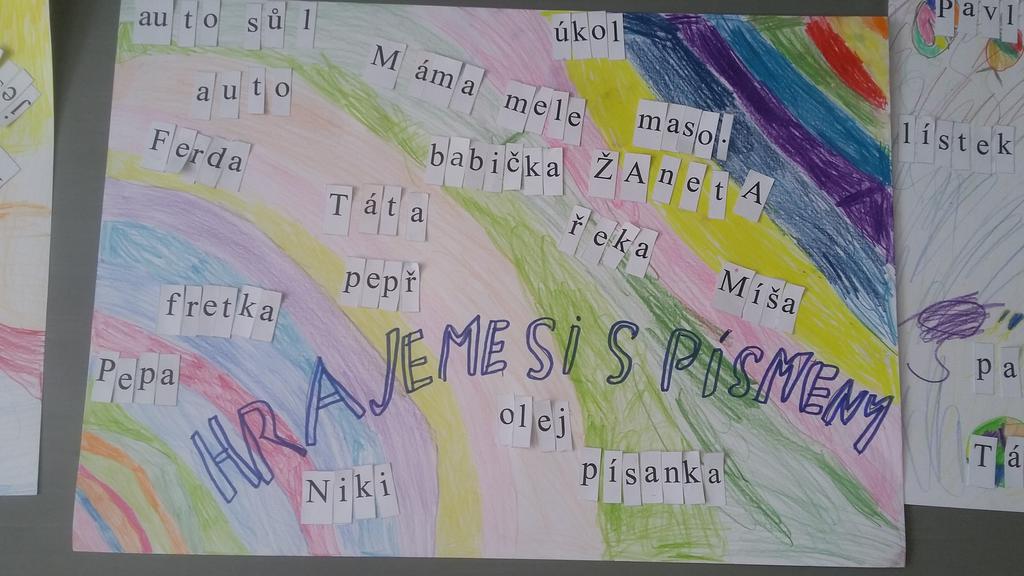 auto sůl
úkol
auto
Máma mele maso.
Ferda
babička
ŽAnetA
Táta
řeka
pepř
Míša
fretka
Pepa
HRAJEME SI S PÍSMENY
olej
Niki
písanka
Pavl
lístek
pa
Tá